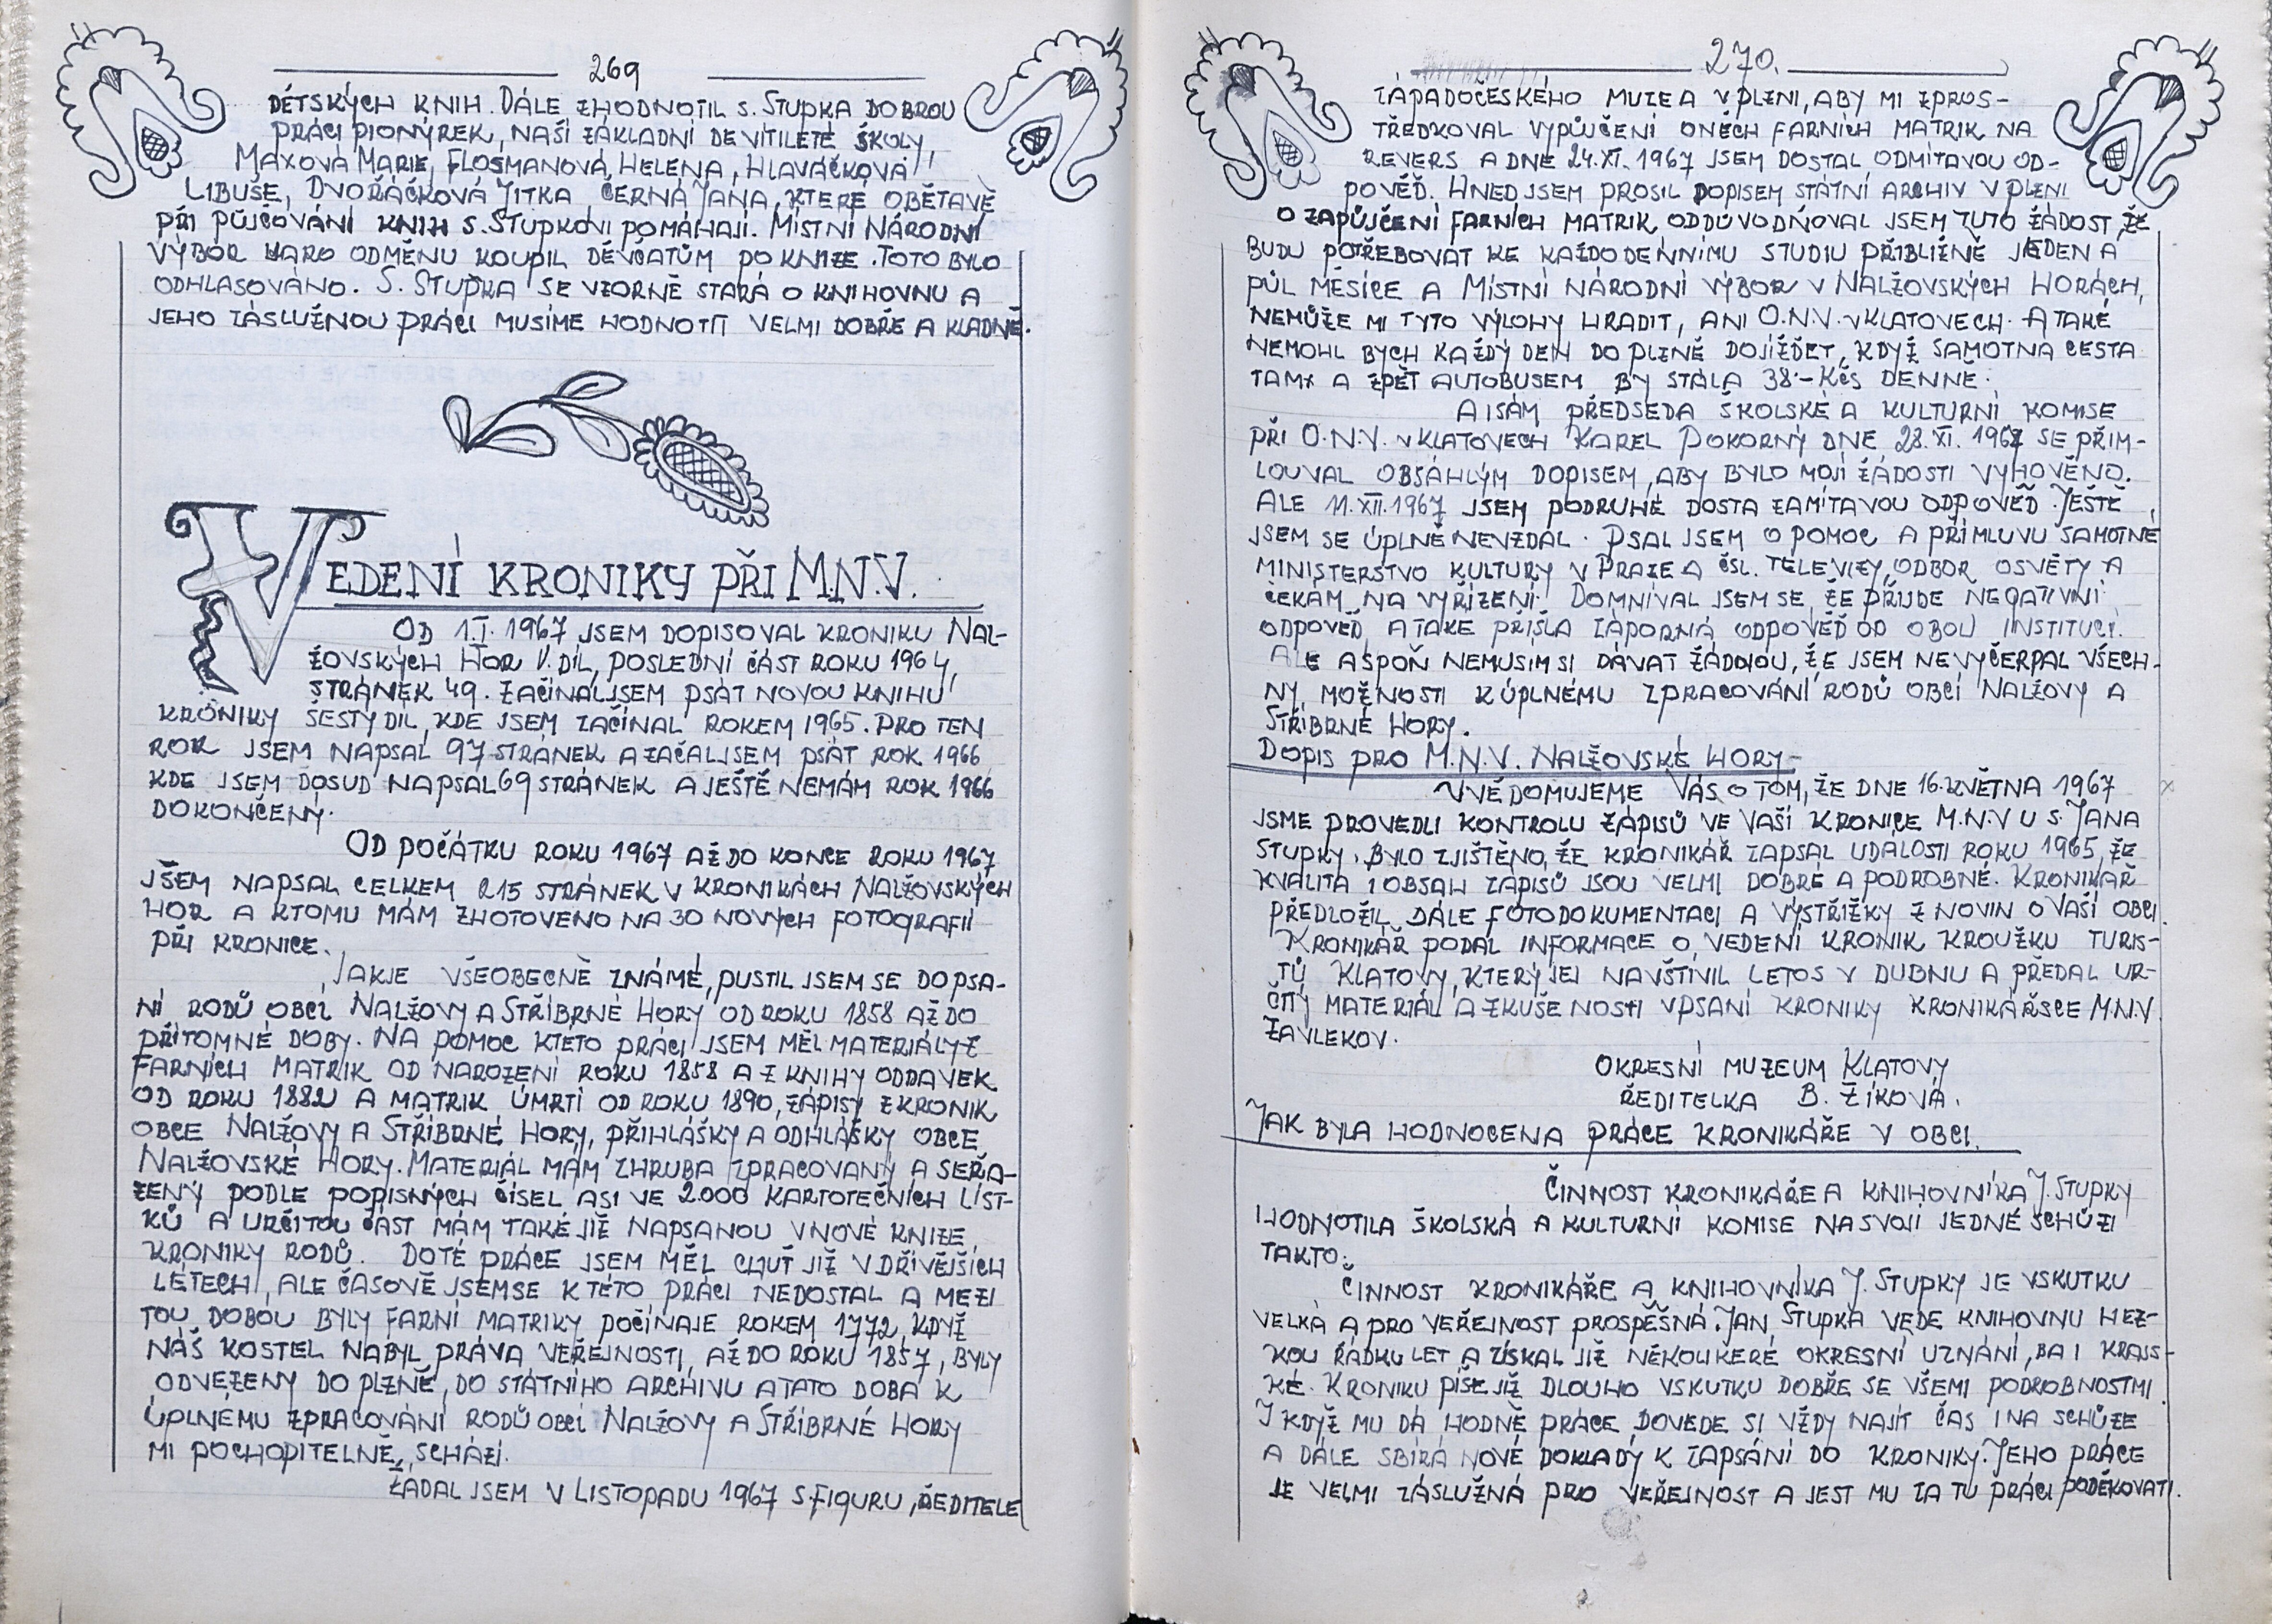 269
DĚTSKÝCH KNIH. DÁLE ZHODNOTIL S. STUPKA DOBROU
PRÁCI PIONÝREK, NAŠÍ ZÁKLADNÍ DEVÍTILETÉ ŠKOLY,
MAXOVÁ MARIE, FLOSMANOVÁ HELENA, HLAVÁČKOVÁ
LIBUŠE, DVOŘÁČKOVÁ JITKA ČERNÁ JANA, KTERÉ OBĚTAVĚ
PŘI PŮJČOVÁNÍ KNIH S. STUPKOVI POMÁHAJÍ. MÍSTNÍ NÁRODNÍ
VÝBOR JAKO ODMĚNU KOUPIL DĚVČATŮM PO KNIZE. TOTO BYLO
ODHLASOVÁNO. S. STUPKA SE VZORNĚ STARÁ O KNIHOVNU A
JEHO ZÁSLUŽNOU PRÁCI MUSÍME HODNOTIT VELMI DOBŘE A KLADNĚ.
VEDENÍ KRONIKY PŘI M.N.V.
OD 1.I. 1967 JSEM DOPISOVAL KRONIKU NAL-
ŽOVSKÝCH HOR V. DÍL, POSLEDNÍ ČÁST ROKU 1964,
STRÁNEK 49. ZAČÍNAL JSEM PSÁT NOVOU KNIHU
KRONIKY ŠESTÝ DÍL, KDE JSEM ZAČÍNAL ROKEM 1965. PRO TEN
ROK JSEM NAPSAL 97 STRÁNEK A ZAČAL JSEM PSÁT ROK 1966
KDE JSEM DOSUD NAPSAL 69 STRÁNEK A JEŠTĚ NEMÁM ROK 1966
DOKONČENÝ.
OD POČÁTKU ROKU 1967 AŽ DO KONCE ROKU 1967
JSEM NAPSAL CELKEM 215 STRÁNEK V KRONIKÁCH NALŽOVSKÝCH
HOR A KTOMU MÁM ZHOTOVENO NA 30 NOVÝCH FOTOGRAFIÍ
PŘI KRONICE.
JAK JE VŠEOBECNĚ ZNÁMÉ, PUSTIL JSEM SE DO PSA-
NÍ RODŮ OBCÍ NALŽOVY A STŘÍBRNÉ HORY OD ROKU 1858 AŽ DO
PŘÍTOMNÉ DOBY. NA POMOC KTÉTO PRÁCI JSEM MĚL MATERIÁLY Z
FARNÍCH MATRIK OD NAROZENÍ ROKU 1858 A Z KNIHY ODDAVEK
OD ROKU 1882 A MATRIK ÚMRTÍ OD ROKU 1890, ZÁPISY Z KRONIK
OBCE NALŽOVY A STŘÍBRNÉ HORY, PŘIHLÁŠKY A ODHLÁŠKY OBCE
NALŽOVSKÉ HORY. MATERIÁL MÁM ZHRUBA ZPRACOVANÝ A SEŘA-
ZENÝ PODLE POPISNÝCH ČÍSEL ASI VE 2.000 KARTOTEČNÍCH LÍST-
KŮ A URČITOU ČÁST MÁM TAKÉ JIŽ NAPSANOU V NOVÉ KNIZE
KRONIKY RODŮ. DO TÉ PRÁCE JSEM MĚL CHUŤ JIŽ V DŘÍVĚJŠÍCH
LÉTECH, ALE ČASOVĚ JSEM SE K TÉTO PRÁCI NEDOSTAL A MEZI
TOU DOBOU BYLY FARNÍ MATRIKY POČÍNAJE ROKEM 1772, KDYŽ
NÁŠ KOSTEL NABYL PRÁVA VEŘEJNOSTI, AŽ DO ROKU 1857, BYLY
ODVEZENY DO PLZNĚ, DO STÁTNÍHO ARCHIVU A TATO DOBA K
ÚPLNÉMU ZPRACOVÁNÍ RODŮ OBCÍ NALŽOVY A STŘÍBRNÉ HORY
MI POCHOPITELNĚ SCHÁZÍ.
ŽÁDAL JSEM V LISTOPADU 1967 S. FIGURU, ŘEDITELE
270.
ZÁPADOČESKÉHO MUZEA V PLZNI, ABY MI ZPROS-
TŘEDKOVAL VYPŮJČENÍ ONĚCH FARNÍCH MATRIK NA
REVERS A DNE 24.XI. 1967 JSEM DOSTAL ODMÍTAVOU OD-
POVĚĎ. HNED JSEM PROSIL DOPISEM STÁTNÍ ARCHIV V PLZNI
O ZAPŮJČENÍ FARNÍCH MATRIK, ODDŮVODŇOVAL JSEM TUTO ŽÁDOST, ŽE
BUDU POTŘEBOVAT KE KAŽDODENNÍMU STUDIU PŘIBLIŽNĚ JEDEN A
PŮL MĚSÍCE A MÍSTNÍ NÁRODNÍ VÝBOR V NALŽOVSKÝCH HORÁCH,
NEMŮŽE MI TYTO VÝLOHY HRADIT, ANI O.N.V. V KLATOVECH. A TAKÉ
NEMOHL BYCH KAŽDÝ DEN DO PLZNĚ DOJÍŽĎET, KDYŽ SAMOTNÁ CESTA
TAM A ZPĚT AUTOBUSEM BY STÁLA 38.- KČS DENNĚ.
A I SÁM PŘEDSEDA ŠKOLSKÉ A KULTURNÍ KOMISE
PŘI O.N.V. V KLATOVECH KAREL POKORNÝ DNE 28.XI. 1967 SE PŘIM-
LOUVAL OBSÁHLÝM DOPISEM, ABY BYLO MOJÍ ŽÁDOSTI VYHOVĚNO.
ALE 11.XII.1967 JSEM PODRUHÉ DOSTA ZAMÍTAVOU ODPOVĚĎ. JEŠTĚ
JSEM SE ÚPLNĚ NEVZDAL. PSAL JSEM O POMOC A PŘÍMLUVU SAMOTNÉ
MINISTERSTVO KULTURY V PRAZE A ČSL. TELEVIZY, ODBOR OSVĚTY A
ČEKÁM NA VYŘÍZENÍ. DOMNÍVAL JSEM SE, ŽE PŘIJDE NEGATIVNÍ
ODPOVĚĎ, A TAKÉ PŘIŠLA ZÁPORNÁ ODPOVĚĎ OD OBOU INSTITUCÍ.
ALE ASPOŇ NEMUSÍM SI DÁVAT ŽÁDNOU, ŽE JSEM NEVYČERPAL VŠECH-
NY MOŽNOSTI K ÚPLNÉMU ZPRACOVÁNÍ RODŮ OBCÍ NALŽOVY A
STŘÍBRNÉ HORY.
DOPIS PRO M.N.V. NALŽOVSKÉ HORY-
UVĚDOMUJEME VÁS O TOM, ŽE DNE 16. KVĚTNA 1967
JSME PROVEDLI KONTROLU ZÁPISŮ VE VAŠÍ KRONICE M.N.V U S. JANA
STUPKY. BYLO ZJIŠTĚNO, ŽE KRONIKÁŘ ZAPSAL UDALOSTI ROKU 1965, ŽE
KVALITA I OBSAH ZÁPISŮ JSOU VELMI DOBRÉ A PODROBNÉ. KRONIKÁŘ
PŘEDLOŽIL DÁLE FOTODOKUMENTACI A VÝSTŘIŽKY Z NOVIN O VAŠÍ OBCI.
KRONIKÁŘ PODAL INFORMACE O VEDENÍ KRONIK KROUŽKU TURIS-
TŮ KLATOVY, KTERÝ JEJ NAVŠTÍVIL LETOS V DUBNU A PŘEDAL UR-
ČITÝ MATERIÁL A ZKUŠENOSTI V PSANÍ KRONIKY KRONIKÁŘSCE M.N.V.
ZAVLEKOV.
OKRESNÍ MUZEUM KLATOVY
ŘEDITELKA B. ZÍKOVÁ.
JAK BYLA HODNOCENA PRÁCE KRONIKÁŘE V OBCI.
ČINNOST KRONIKÁŘE A KNIHOVNÍKA J. STUPKY
HODNOTILA ŠKOLSKÁ A KULTURNÍ KOMISE NA SVOJÍ JEDNÉ SCHŮZI
TAKTO:
ČINNOST KRONIKÁŘE A KNIHOVNÍKA J. STUPKY JE VSKUTKU
VELKÁ A PRO VEŘEJNOST PROSPĚŠNÁ. JAN STUPKA VEDE KNIHOVNU HEZ-
KOU ŘÁDKU LET A ZÍSKAL JIŽ NĚKOLIKERÉ OKRESNÍ UZNÁNÍ, BA I KRAJS-
KÉ. KRONIKU PÍŠE JIŽ DLOUHO VSKUTKU DOBŘE SE VŠEMI PODROBNOSTMI.
I KDYŽ MU DÁ HODNĚ PRÁCE, DOVEDE SI VŽDY NAJÍT ČAS I NA SCHŮZE
A DÁLE SBÍRÁ NOVÉ DOKLADY K ZAPSÁNÍ DO KRONIKY. JEHO PRÁCE
JE VELMI ZÁSLUŽNÁ PRO VEŘEJNOST A JEST MU ZA TU PRÁCI PODĚKOVATI.